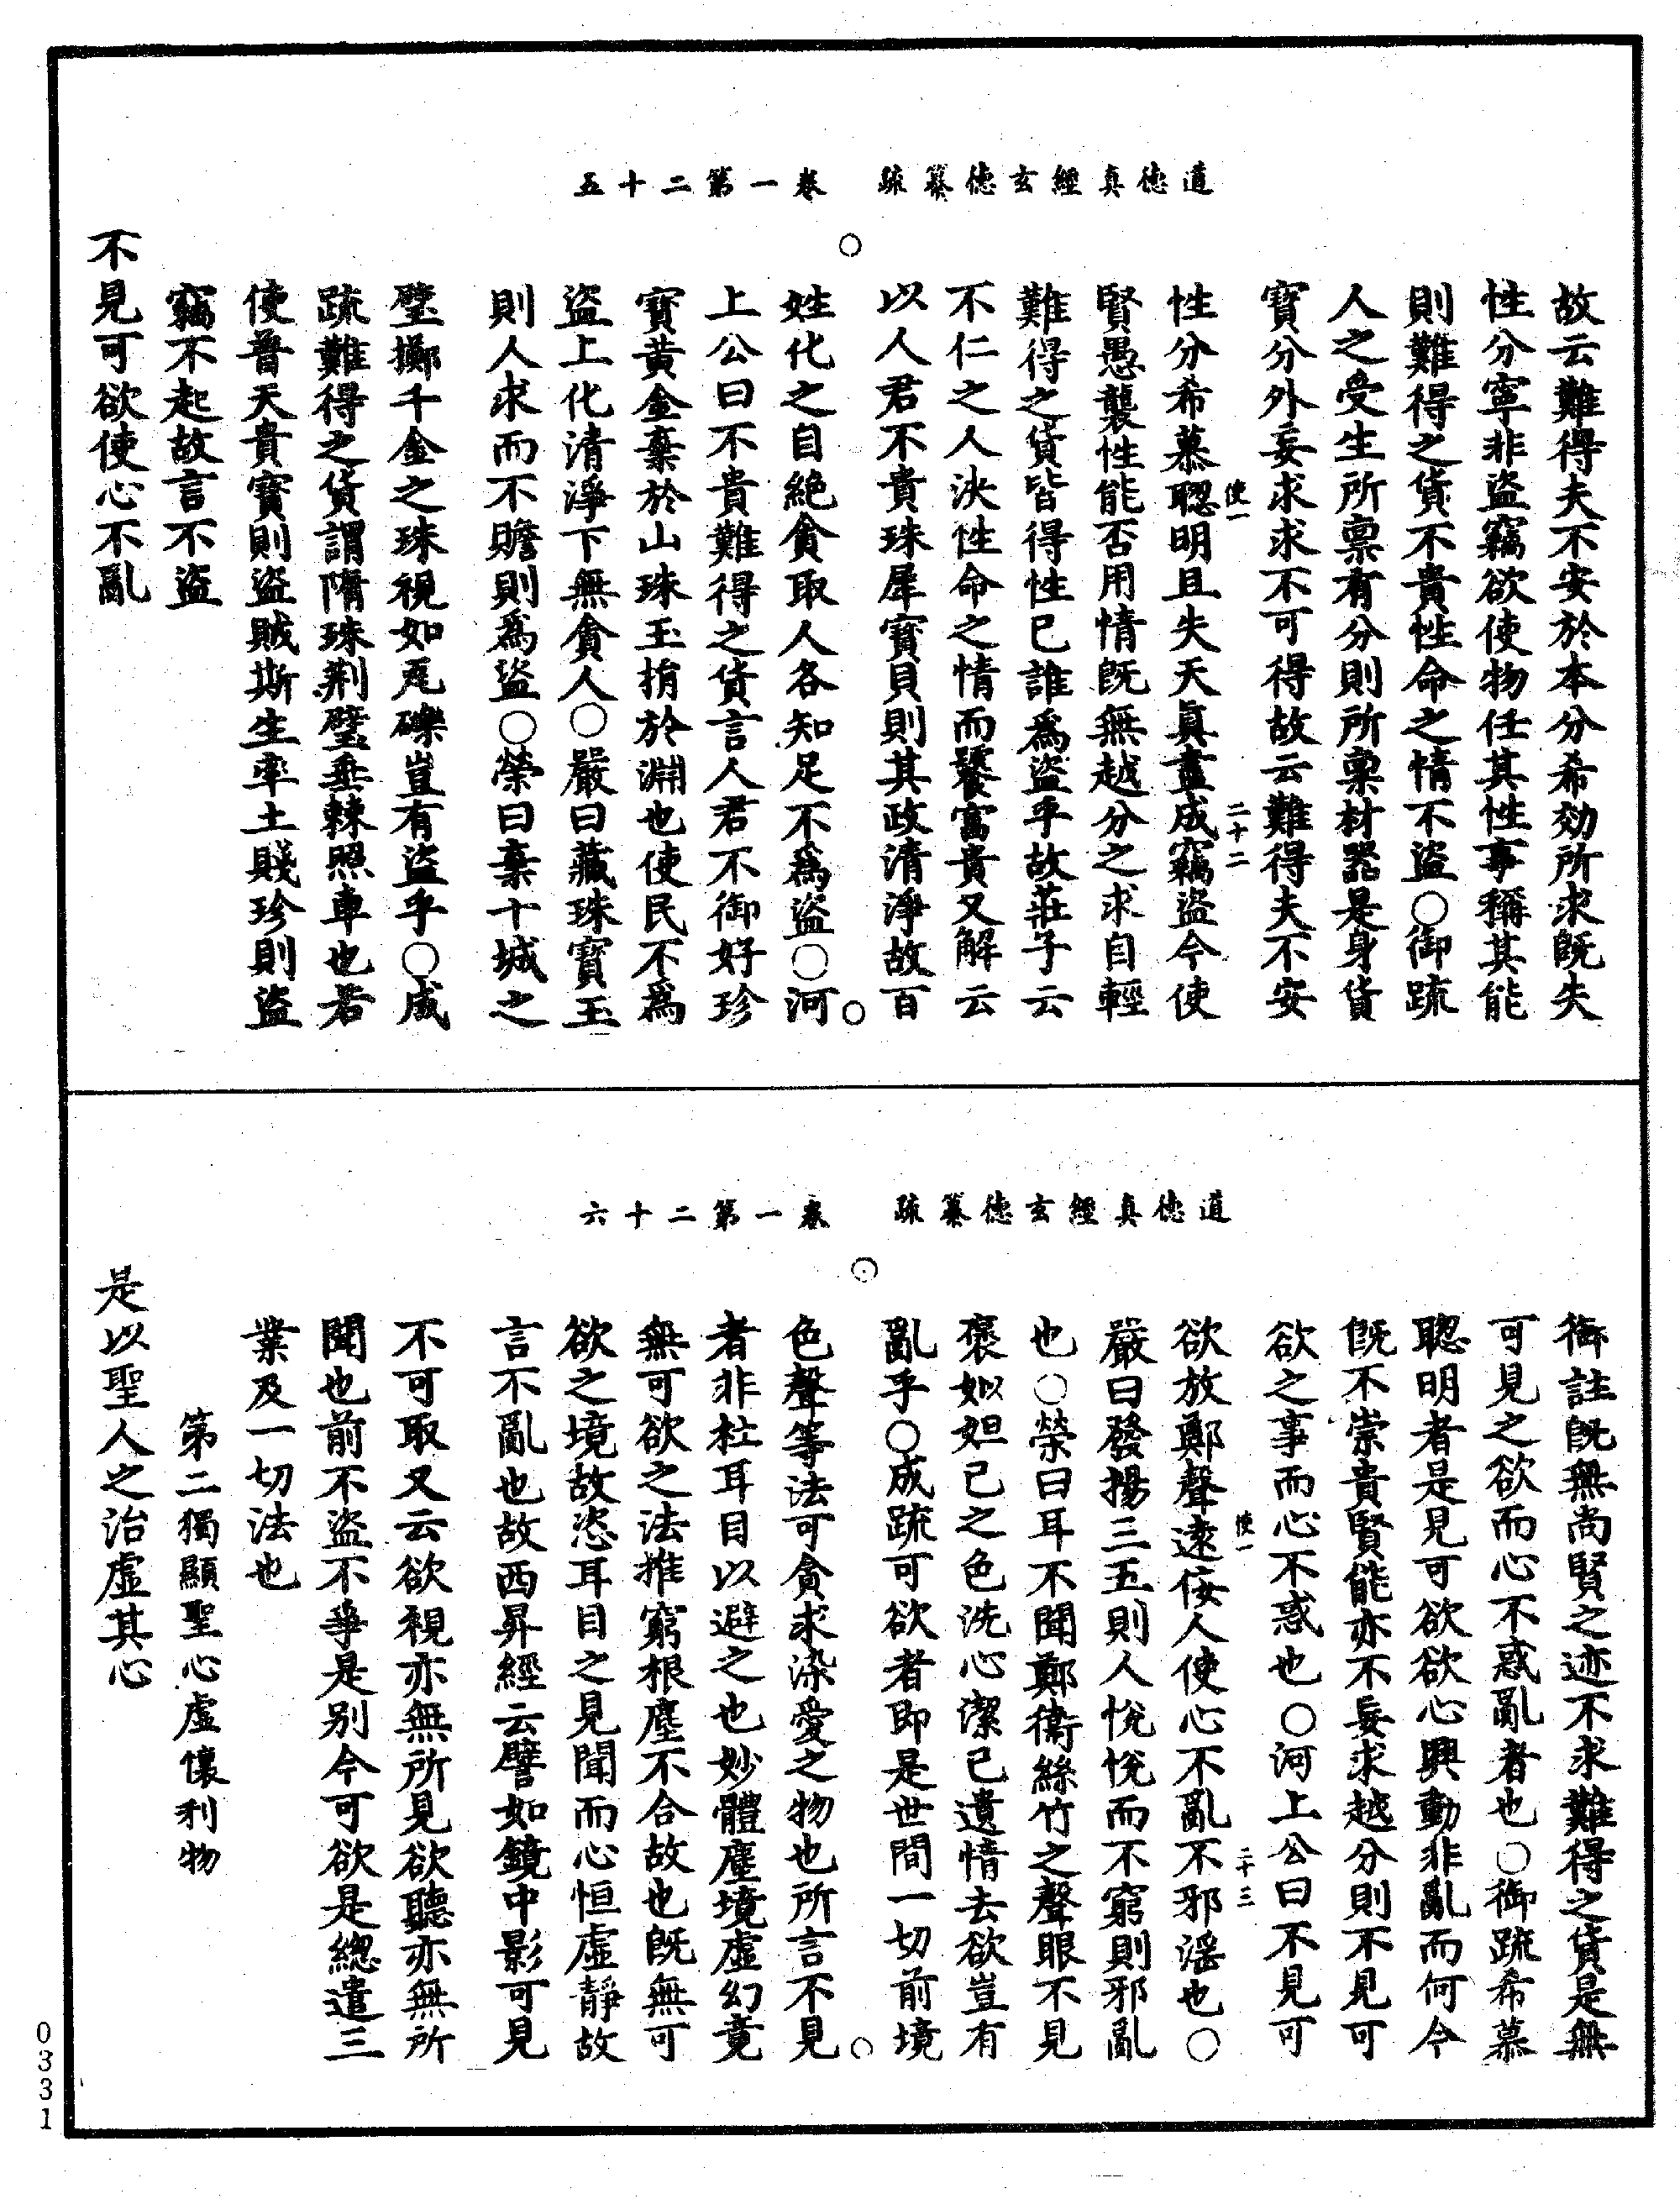 道德真經玄德纂疏　卷一第二十五
故云難得夫不安於本分希効所求既失
性分寧非盜竊欲使物任其性事稱其能
則難得之貨不貴性命之情不盜○御疏
人之受生所稟有分則所稟材器是身貨
寶分外妄求求不可得故云難得夫不安
使一　二十二
性分希慕聰明且失天真盡成竊盜今使
賢愚襲性能否用情既無越分之求自輕
難得之貨皆得性已誰為盜乎故莊子云
不仁之人決性命之情而饕富貴又解云
以人君不貴珠犀寶貝則其政清淨故百
姓化之自絕貪取人各知足不為盜○河
上公曰不貴難得之貨言人君不御好珍
寶黃金棄於山珠玉捐於淵也使民不為
盜上化清淨下無貪人○嚴曰藏珠寶玉
則人求而不贍則為盜○榮曰棄十城之
璧擲千金之珠視如瓦礫豈有盜乎○成
疏難得之貨謂隋珠荆璧垂棘照車也若
使普天貴寶則盜賊斯生率土賤珍則盜
竊不起故言不盜
不見可欲使心不亂
道德真經玄德纂疏　卷一第二十六
御註既無尚賢之迹不求難得之貨是無
可見之欲而心不惑亂者也○御疏希慕
聰明者是見可欲欲心興動非亂而何今
既不崇貴賢能亦不妄求越分則不見可
欲之事而心不惑也○河上公曰不見可
使一　二十三
欲放鄭聲遠佞人使心不亂不邪淫也○
嚴曰發揚三五則人悅悅而不窮則邪亂
也○榮曰耳不聞鄭衛絲竹之聲眼不見
褒姒妲己之色洗心潔己遺情去欲豈有
亂乎○成疏可欲者即是世間一切前境
色聲等法可貪求染愛之物也所言不見
者非杜耳目以避之也妙體塵境虛幻竟
無可欲之法推窮根塵不合故也既無可
欲之境故恣耳目之見聞而心恒虛靜故
言不亂也故西昇經云譬如鏡中影可見
不可取又云欲視亦無所見欲聽亦無所
聞也前不盜不爭是別今可欲是總遣三
業及一切法也
第二獨顯聖心虛懷利物
是以聖人之治虛其心
0331